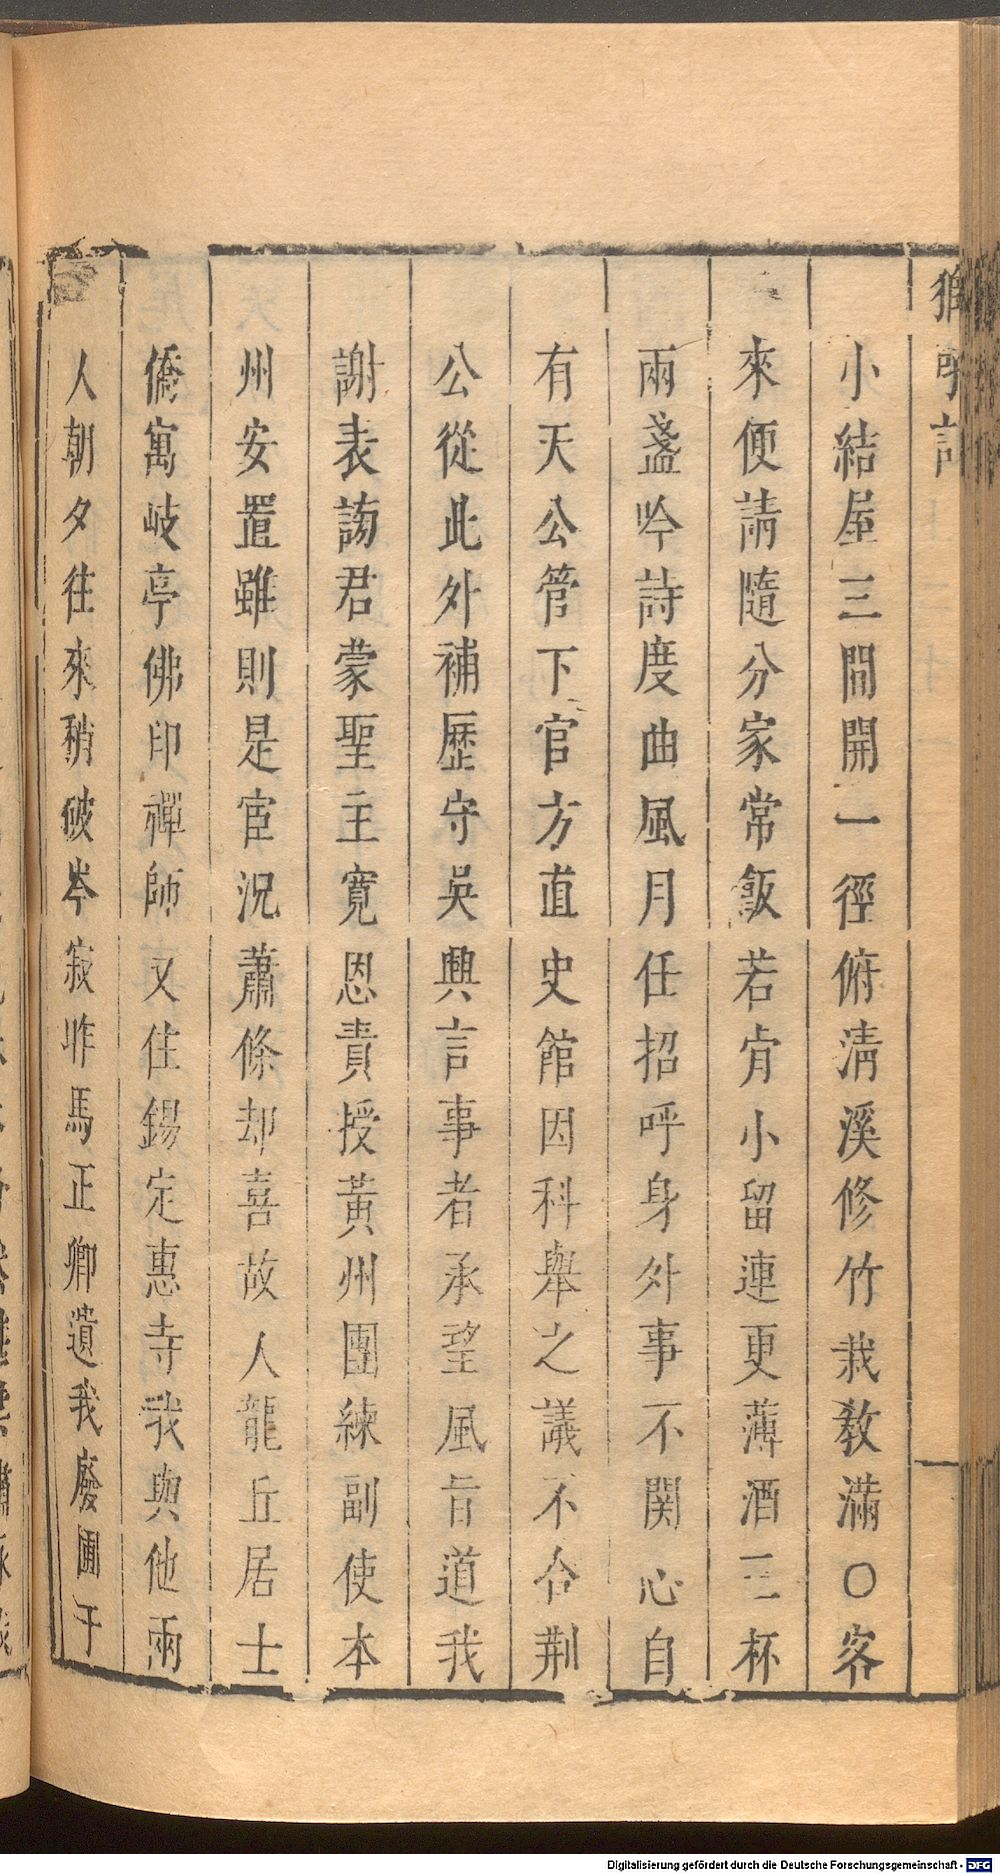 小結屋三間開一徑俯清溪修竹栽教滿〇客
來便請隨分家常飯若肯小留連更薄酒三杯
兩盞吟詩度曲風月任招呼身外事不關心自
有天公管下官方直史館因科舉之議不合荆
公從此外補歷守吳興言事者承望風旨道我
謝表謗君蒙聖主寬恩責授黃州團練副使本
州安置雖則是宦況蕭條却喜故人龍丘居士
僑寓岐亭佛印禪師又住錫定惠寺我與他兩
人朝夕往來稍破岑寂昨馬正卿遺我廢圃于
Digitalisierung gefördert durch die Deutsche Forschungsgemeinschaft - DFG